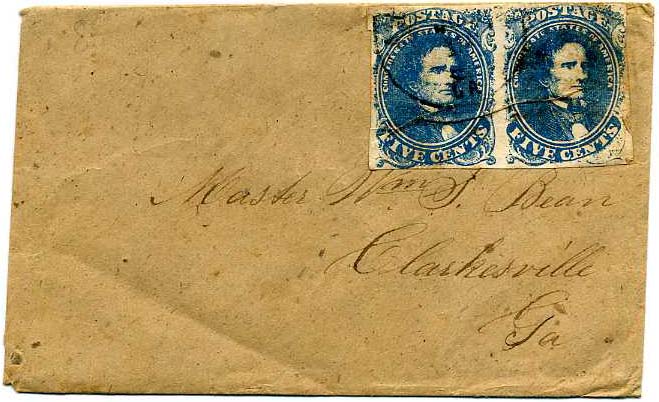 POSTAGE POSTAGE
CONFEDERATE STATES OF AMERICA CONFEDERATE STATES OF AMERICA
FIVE CENTS FIVE CENTS
Master Wm S. Bean
Clarkesville
Ga